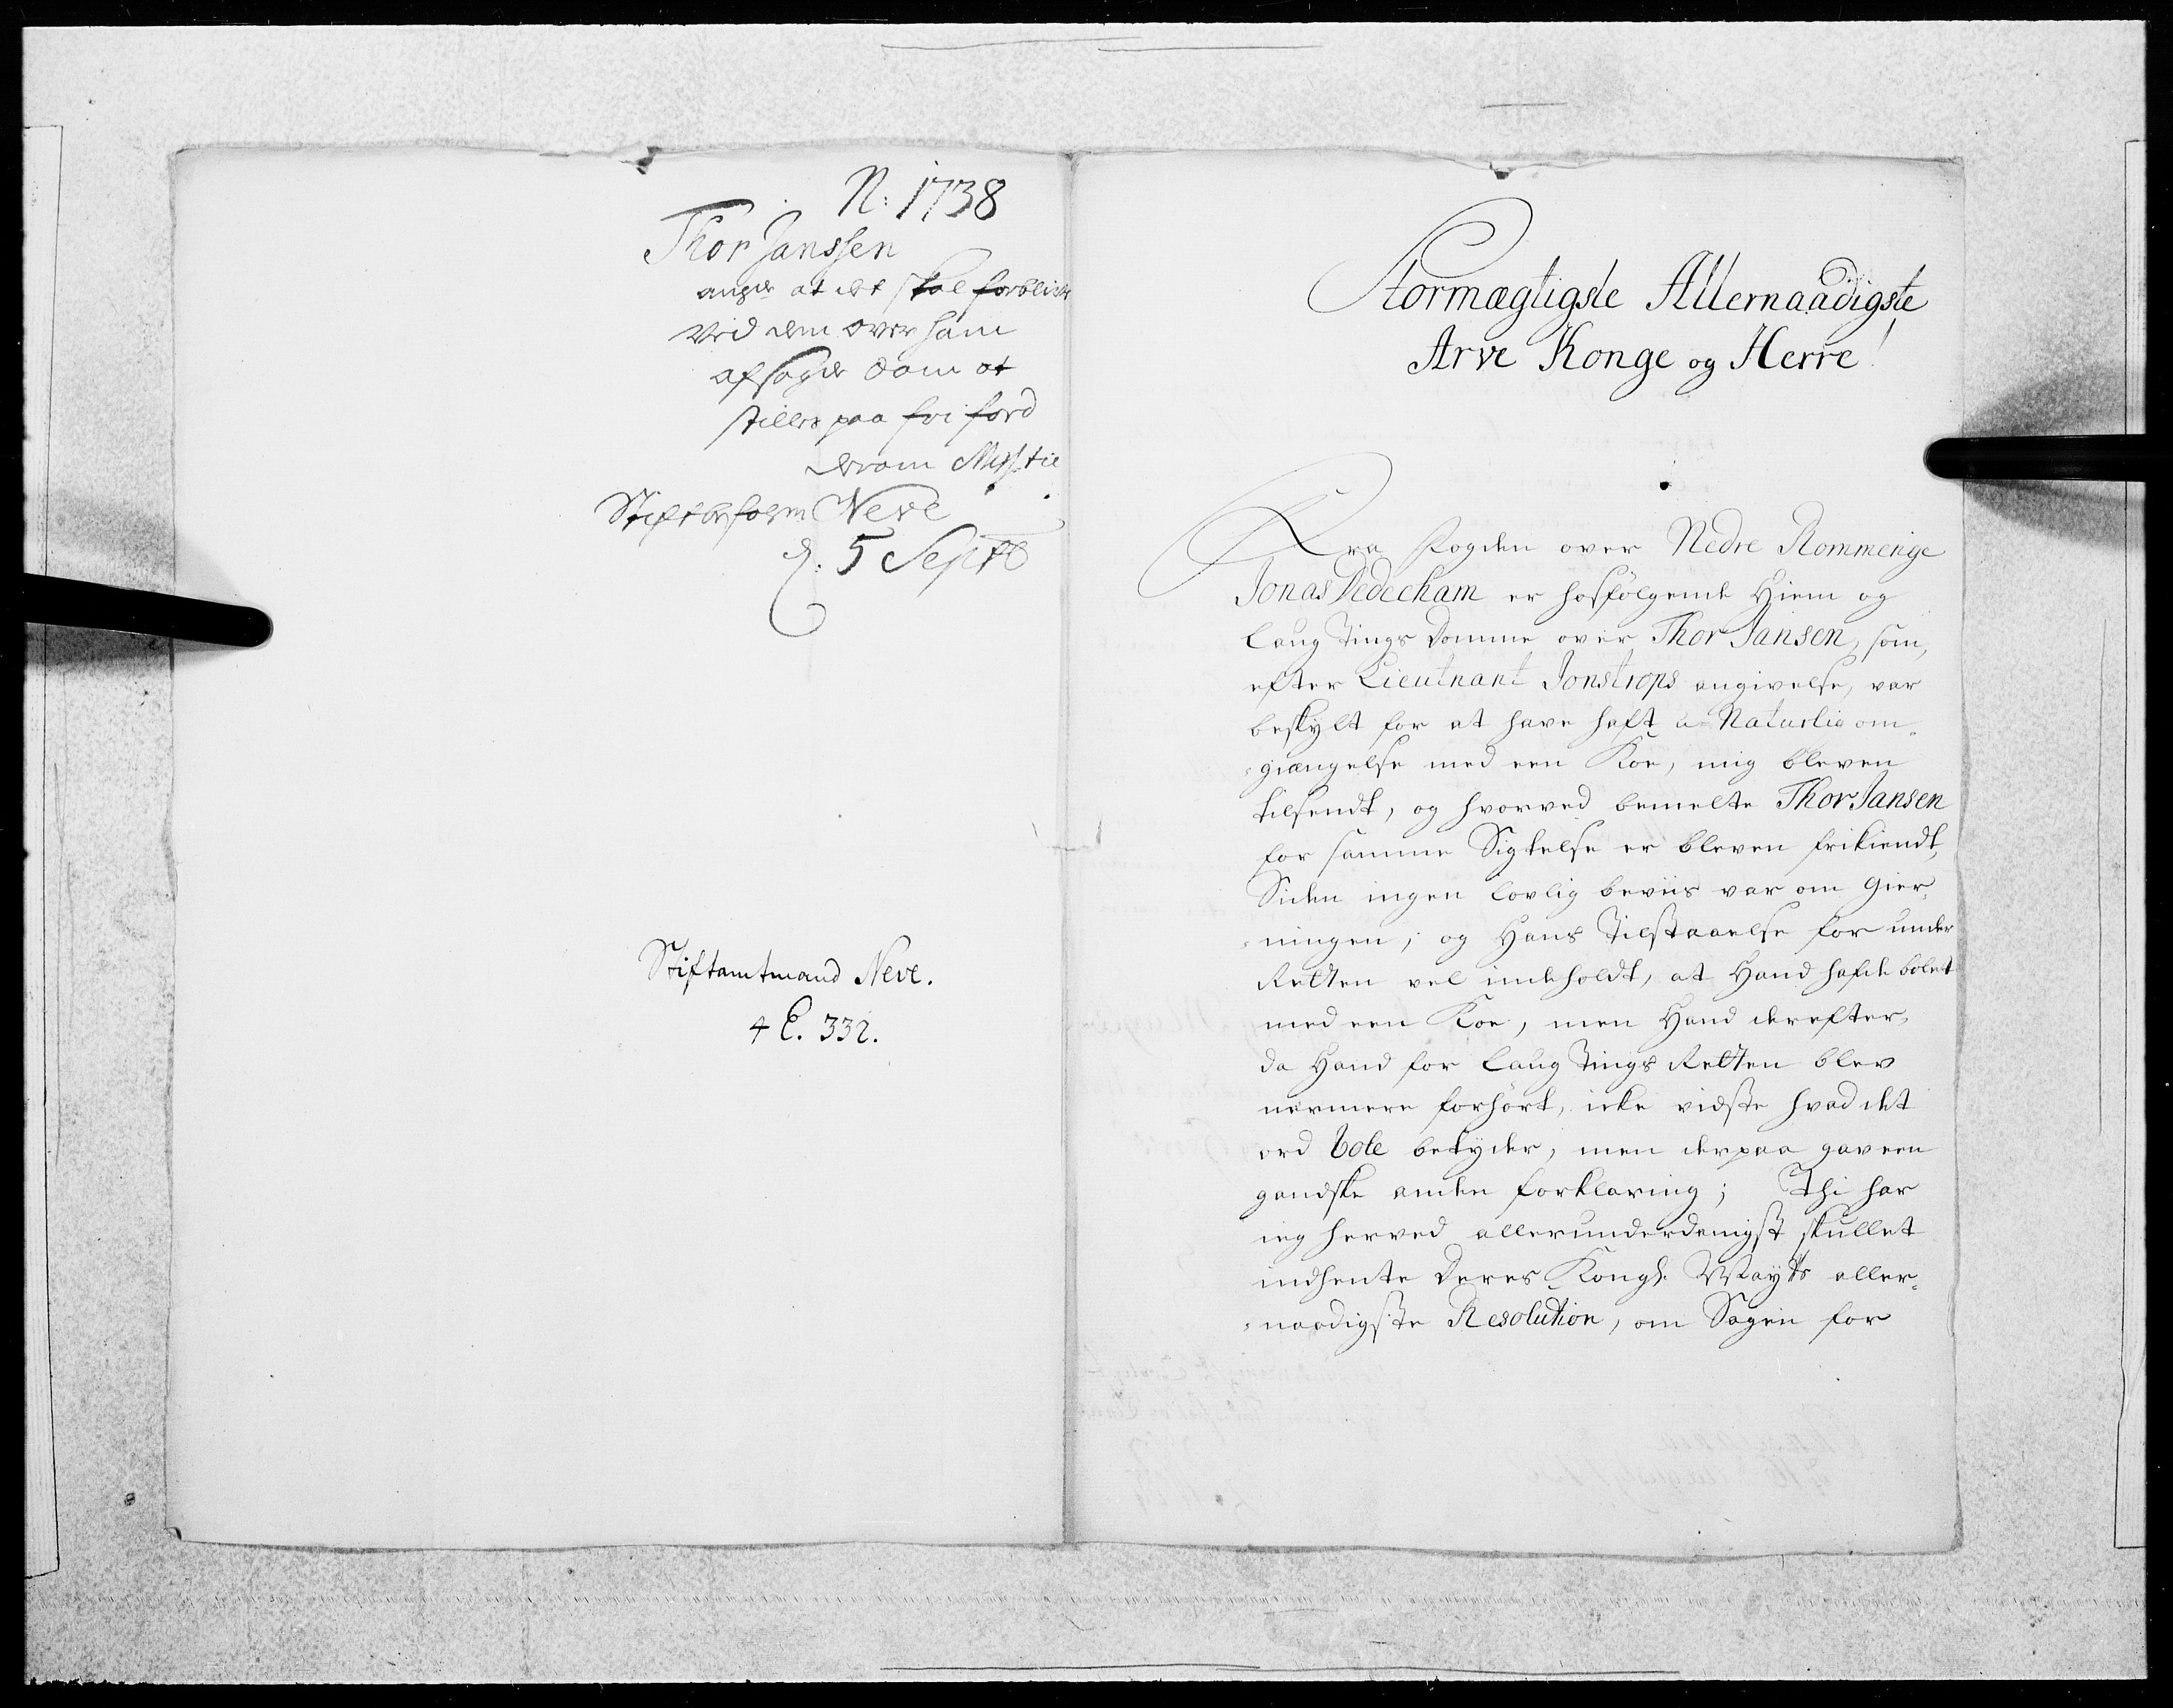 N: 1738
Thor Janssen
ang: at det skal forblive
Ved den over ham
afsagde dom at
stilles paa fri fod
derom Miss: til
Stiftbefalm Neve
d: 5 Sept
Stiftamtmand Neve.
4 C. 332.
Stormægtigste Allernaadigste
Arve Konge og Herre!
Fra Fogden over Nedre Rommerige
Jonas Vedecham er hosfølgende Hiem og
Laug Tings Domme over Thor Jansen, som,
efter Lieutnant Jonstrops angivelse, var
beskylt for at have haft u-Naturlig om-
-giængelse med een Koe, mig bleven
tilsendt, og hvorved bemelte Thor Jansen
for samme Sigtelse er bleven frikiendt,
Siden ingen lovlig beviis var om Gier-
-ningen, og Hans Tilstaaelse for under
Retten vel indeholdt, at Hand hafde bolet
med een Koe, men Hand derefter,
da Hand for Laug Tings Retten blev
nermere forhørt, icke vidste hvad det
ord bole betyder, men derpaa gav een
gandske anden forklaring; Thi har
ieg herved allerunderdanigst skullet
indhente Deres Kongl. Mayts aller-
-naadigste Resolution, om Sagen for